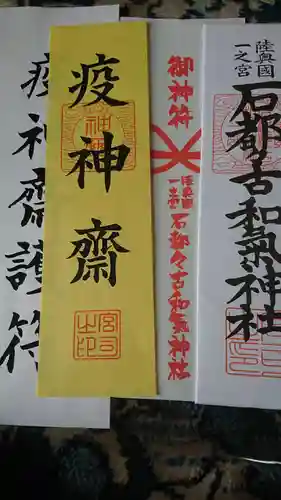 陸奥國
一之宮
石都々古和氣神社
御神符
陸奥國
一之宮
石都々古和氣神社
疫神齋
宮司之印
疫神齋護符